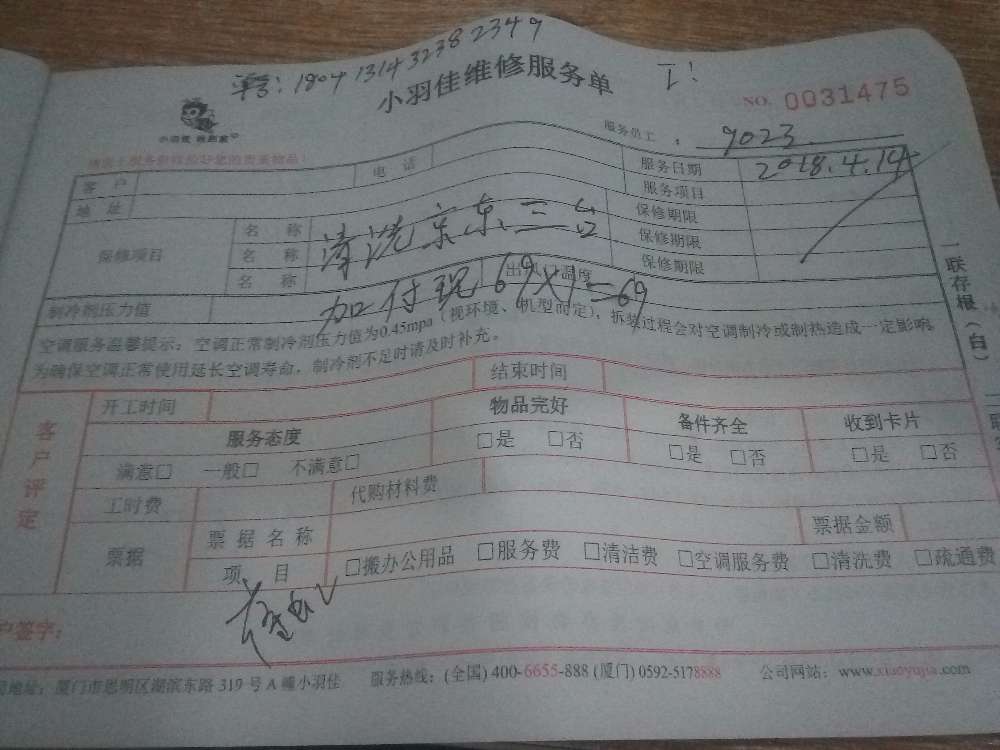 单号: 1804 1314 3238 2349
小羽佳维修服务单
NO. 0031475
服务员工: 9023
客户 电话 服务日期 2018.4.14
地址 服务项目
保修项目 名称 保修期限
名称 清洗京东三台 保修期限
名称 保修期限
制冷剂压力值 加付现 69×1=69
空调服务温馨提示:空调正常制冷剂压力值为0.45mpa(视环境、机型而定),拆装过程会对空调制冷或制热造成一定影响。
为确保空调正常使用延长空调寿命,制冷剂不足时请及时补充。
一联存根(白)
客户评定
开工时间 结束时间
服务态度 物品完好 备件齐全 收到卡片
满意□ 一般□ 不满意□ □是 □否 □是 □否 □是 □否
工时费 代购材料费
票据 票据名称 票据金额
项目 □搬办公用品 □服务费 □清洁费 □空调服务费 □清洗费 □疏通费
户签字:
地址:厦门市思明区湖滨东路 319 号 A 幢小羽佳 服务热线:(全国) 400-6655-888 (厦门) 0592-5178888 公司网站: www.xiaoyujia.com